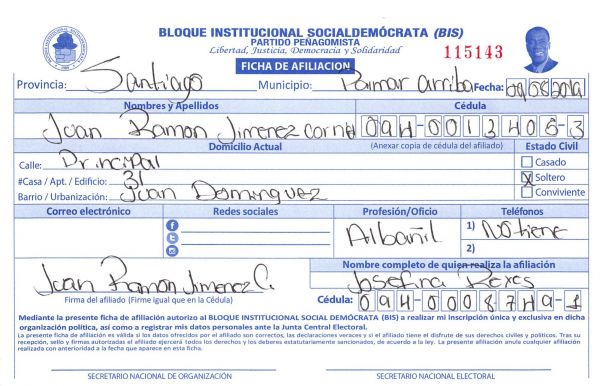 BLOQUE INSTITUCIONAL SOCIALDEMÓCRATA (BIS)
PARTIDO PEÑAGOMISTA
Libertad, Justicia, Democracia y Solidaridad
115143
FICHA DE AFILIACION
Provincia: Santiago Municipio: Palmar arriba Fecha: 09/08/2019
Nombres y Apellidos Cédula
Juan Ramon Jimenez Corniel 094-0013405-3
Domicilio Actual (Anexar copia de cédula del afiliado) Estado Civil
Calle: Principal Casado
#Casa / Apt. / Edificio: 31 X Soltero
Barrio / Urbanización: Juan Dominguez Conviviente
Correo electrónico Redes sociales Profesión/Oficio Teléfonos
Albañil 1) No tiene
2)
Nombre completo de quien realiza la afiliación
Juan Ramon Jimenez C. Josefina Reyes
Firma del afiliado (Firme igual que en la Cédula) Cédula: 094-0008749-1
Mediante la presente ficha de afiliación autorizo al BLOQUE INSTITUCIONAL SOCIAL DEMÓCRATA (BIS) a realizar mi inscripción única y exclusiva en dicha
organización política, así como a registrar mis datos personales ante la Junta Central Electoral.
La presente ficha de afiliación es válida si los datos ofrecidos por el afiliado son correctos, las declaraciones veraces y si el afiliado tiene el disfrute de sus derechos civiles y políticos. Tras su
recepción, sello y firmas autorizadas el afiliado ejercerá todos los derechos y los deberes estatutariamente sancionados, de acuerdo a la ley. La presente afiliación anule cualquier afiliación
realizada con anterioridad a la fecha que aparece en esta ficha.
SECRETARIO NACIONAL DE ORGANIZACIÓN SECRETARIO NACIONAL ELECTORAL